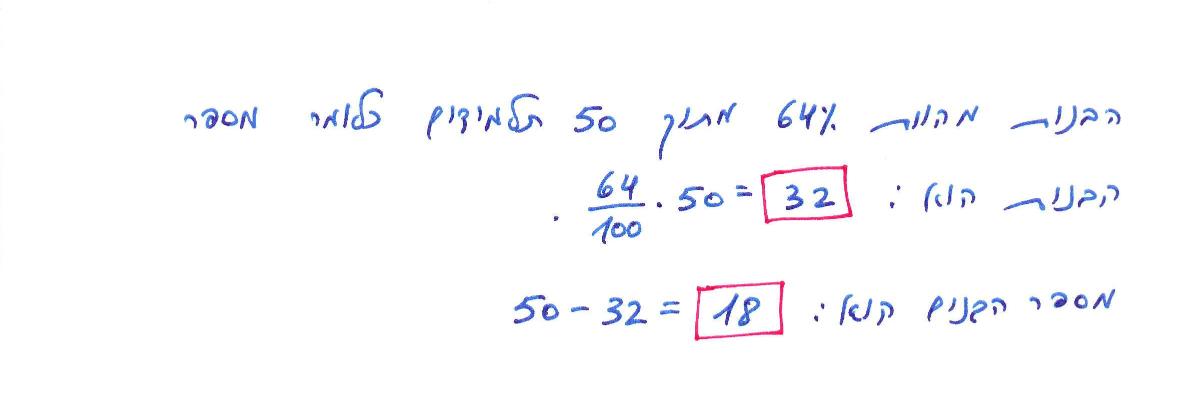 הבנות מהוות 64% מתוך 50 תלמידים כלומר מספר
הבנות הוא: 64/100 · 50 = 32 .
מספר הבנים הוא: 50 - 32 = 18